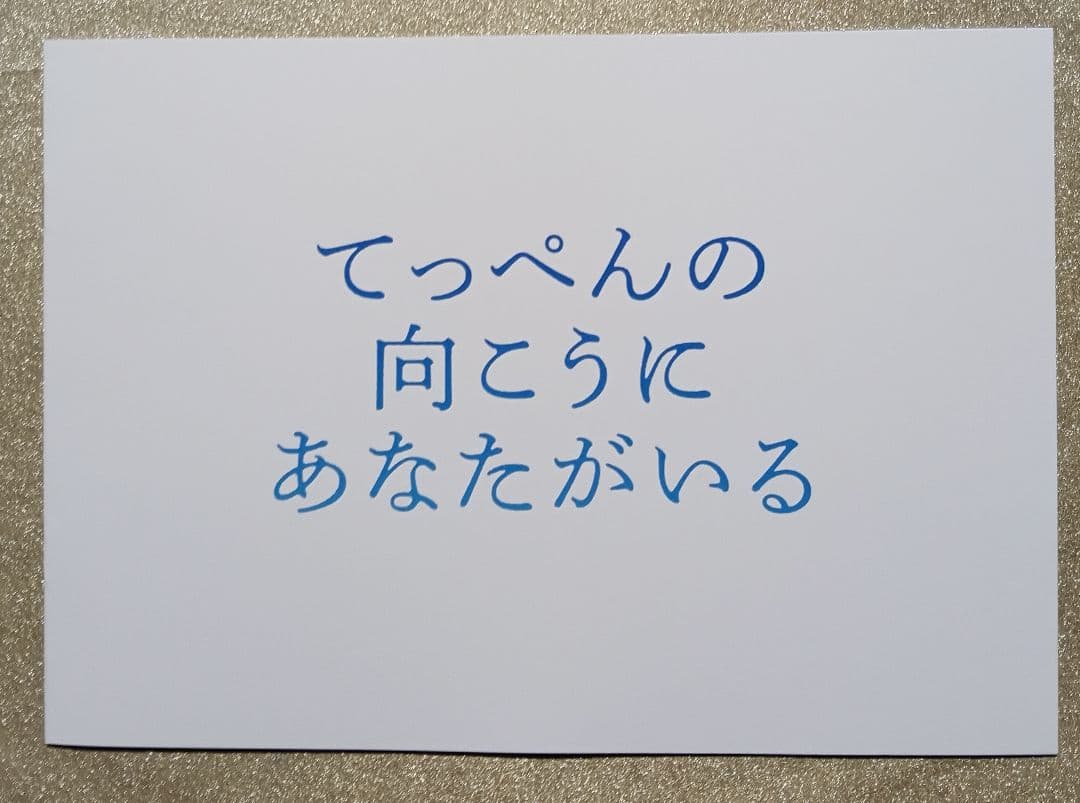 てっぺんの
向こうに
あなたがいる